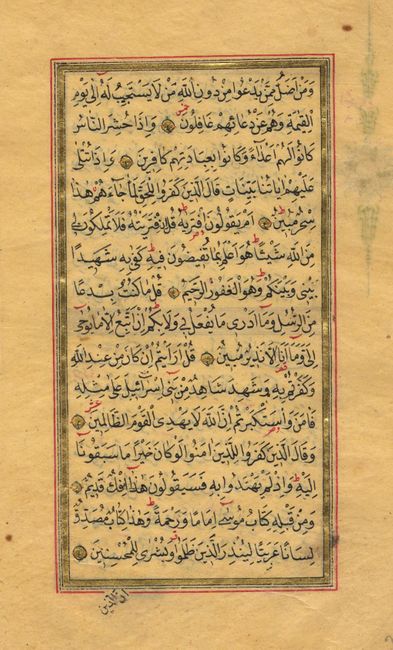 وَمَنْ أَضَلُّ مِمَّنْ يَدْعُوا مِنْ دُونِ اللَّهِ مَنْ لَا يَسْتَجِيبُ لَهُ إِلَى يَوْمِ
الْقِيمَةِ وَهُمْ عَنْ دُعَائِهِمْ غَافِلُونَ وَإِذَا حُشِرَ النَّاسُ
كَانُوا لَهُمْ أَعْدَاءً وَكَانُوا بِعِبَادَتِهِمْ كَافِرِينَ وَإِذَا تُتْلَى
عَلَيْهِمْ آيَاتُنَا بَيِّنَاتٍ قَالَ الَّذِينَ كَفَرُوا لِلْحَقِّ لَمَّا جَاءَهُمْ هَذَا
سِحْرٌ مُبِينٌ أَمْ يَقُولُونَ افْتَرَيهُ قُلْ إِنِ افْتَرَيْتُهُ فَلَا تَمْلِكُونَ لِي
مِنَ اللَّهِ شَيْئًا هُوَ أَعْلَمُ بِمَا تُفِيضُونَ فِيهِ كَفَى بِهِ شَهِيدًا
بَيْنِي وَبَيْنَكُمْ وَهُوَ الْغَفُورُ الرَّحِيمُ قُلْ مَا كُنْتُ بِدْعًا
مِنَ الرُّسُلِ وَمَا أَدْرِي مَا يُفْعَلُ بِي وَلَا بِكُمْ إِنْ أَتَّبِعُ إِلَّا مَا يُوحَى
إِلَيَّ وَمَا أَنَا إِلَّا نَذِيرٌ مُبِينٌ قُلْ أَرَأَيْتُمْ إِنْ كَانَ مِنْ عِنْدِ اللَّهِ
وَكَفَرْتُمْ بِهِ وَشَهِدَ شَاهِدٌ مِنْ بَنِي إِسْرَائِيلَ عَلَى مِثْلِهِ
فَآمَنَ وَاسْتَكْبَرْتُمْ إِنَّ اللَّهَ لَا يَهْدِي الْقَوْمَ الظَّالِمِينَ
وَقَالَ الَّذِينَ كَفَرُوا لِلَّذِينَ آمَنُوا لَوْ كَانَ خَيْرًا مَا سَبَقُونَا
إِلَيْهِ وَإِذْ لَمْ يَهْتَدُوا بِهِ فَسَيَقُولُونَ هَذَا إِفْكٌ قَدِيمٌ
وَمِنْ قَبْلِهِ كِتَابُ مُوسَى إِمَامًا وَرَحْمَةً وَهَذَا كِتَابٌ مُصَدِّقٌ
لِسَانًا عَرَبِيًّا لِيُنْذِرَ الَّذِينَ ظَلَمُوا وَبُشْرَى لِلْمُحْسِنِينَ
ان الذين